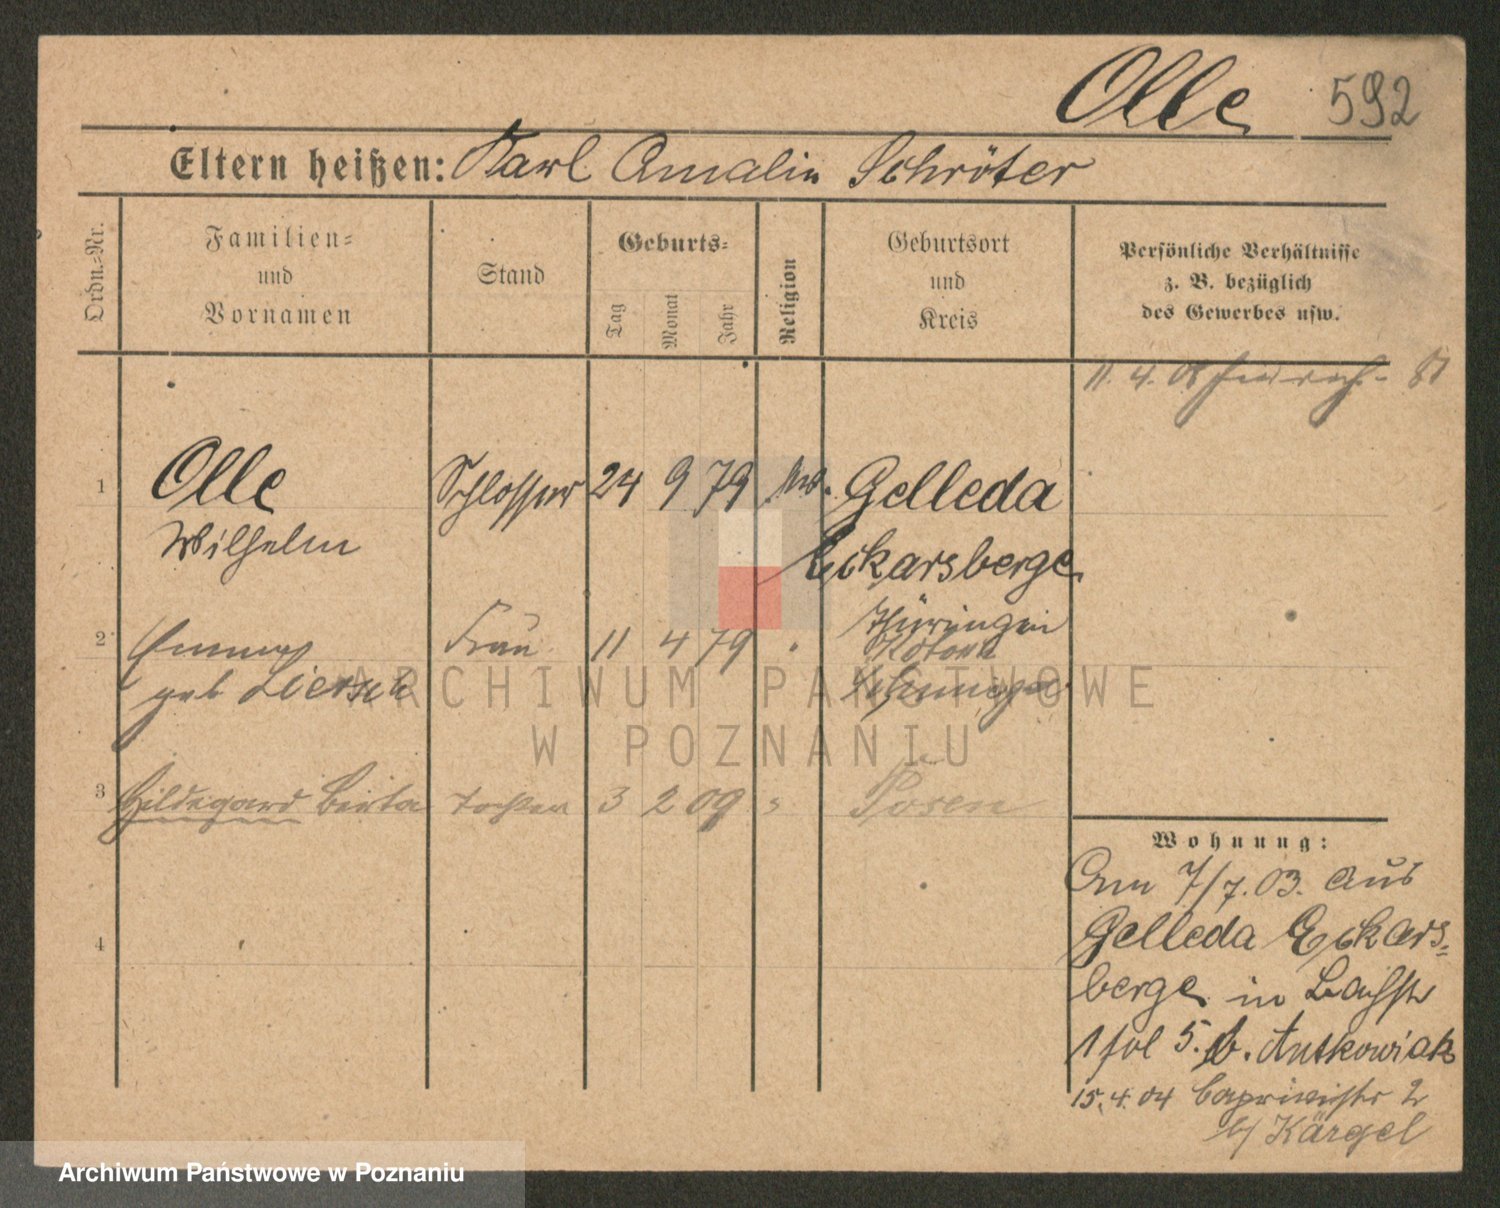 Olle 592
Eltern heißen: Karl Amalin Schröter
Ordn.=Nr.
Familien=
und
Vornamen
Stand
Geburts=
Tag
Monat
Jahr
Religion
Geburtsort
und
Kreis
Persönliche Verhältnisse
z. B. bezüglich
des Gewerbes usw.
11. 4. 08
1 Olle Schlosser 24 9 79 Gelleda
Wilhelm Eckarsberge
Thüringen
2 Emma Frau 11 4 79
geb Liersch
3 Hildegard Berta Tochter 3 2 09 Posen
4
Wohnung:
Am 7/7. 03. aus
Gelleda Eckars=
berge in Bachstr
1 fol 5. b. Antkowiak
15. 4. 04 Caprivistr 2
b/ Kärgel
ARCHIWUM PAŃSTWOWE
W POZNANIU
Archiwum Państwowe w Poznaniu